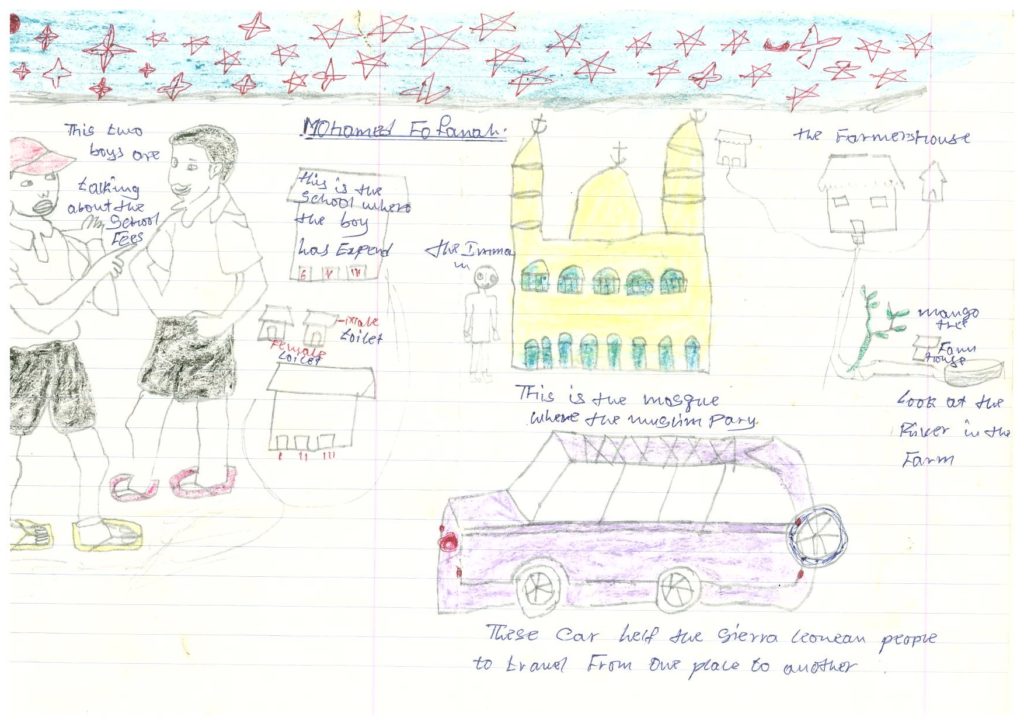 This two
boys are
talking
about the
my School
Fees
Mohamed Fofanah.
this is the
School where
the boy
has Expend
the Imma
m
Male
toilet
Female
toilet
I II III
This is the mosque
where the muslim Pary
the Farmers House
mango
tree
Farm
House
Look at the
River in the
Farm
These Car helf the Sierra Leonean people
to travel From one place to another.